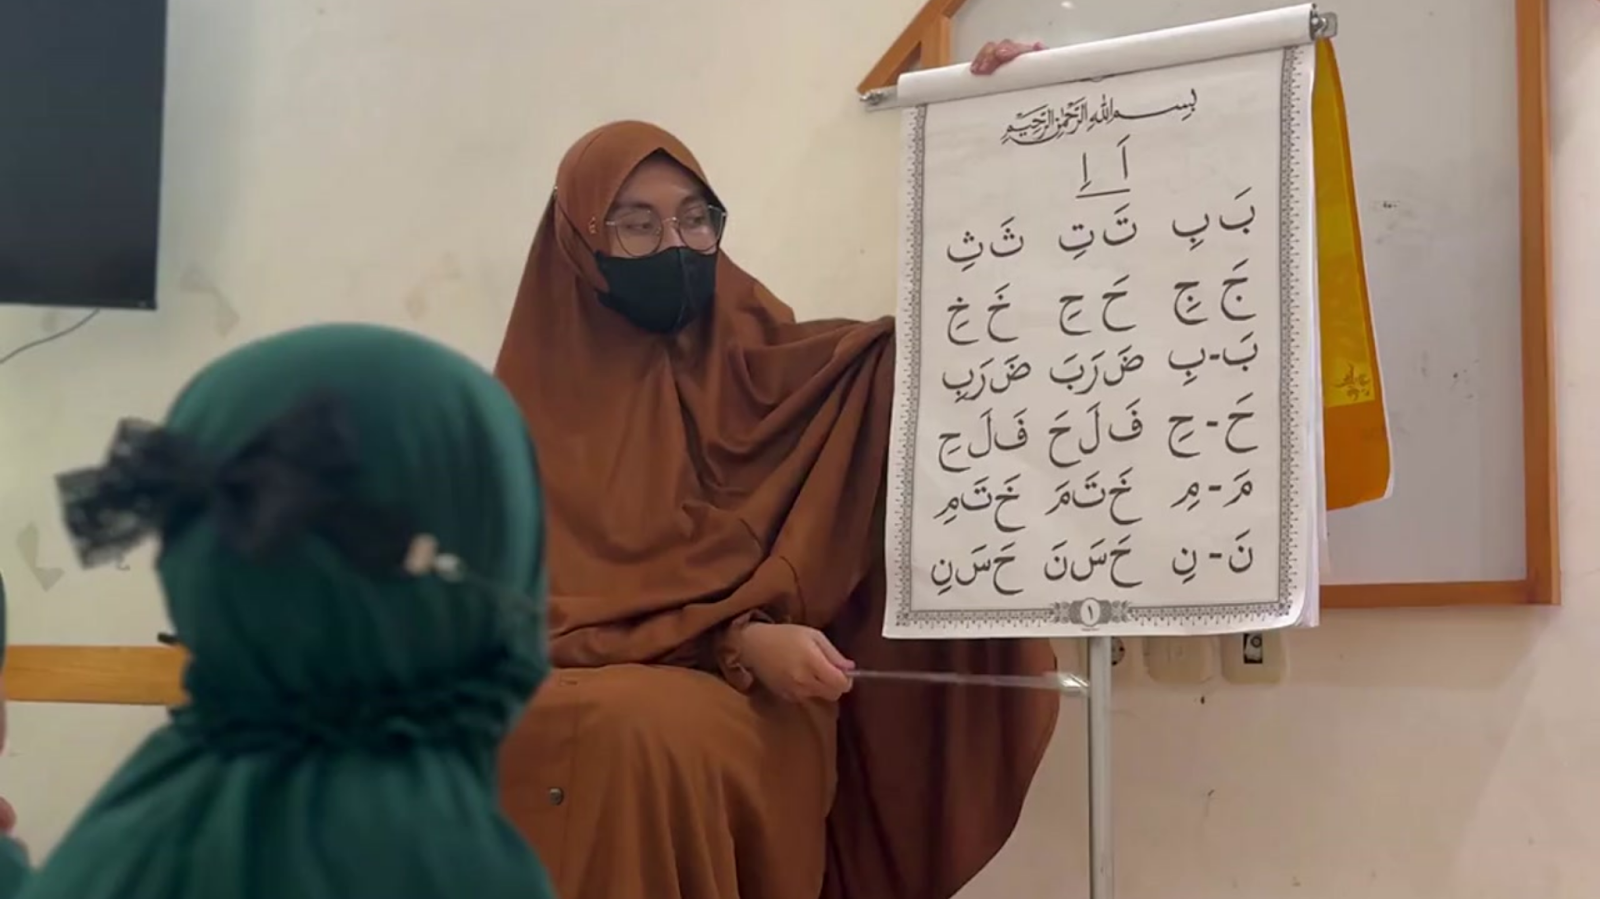 بِسْمِ اللهِ الرَّحْمٰنِ الرَّحِيْمِ
اَ اِ
بَ بِ تَ تِ ثَ ثِ
جَ جِ حَ حِ خَ خِ
بَ - بِ ضَرَبَ ضَرَبِ
حَ - حِ فَلَحَ فَلَحِ
مَ - مِ خَتَمَ خَتَمِ
نَ - نِ حَسَنَ حَسَنِ
١